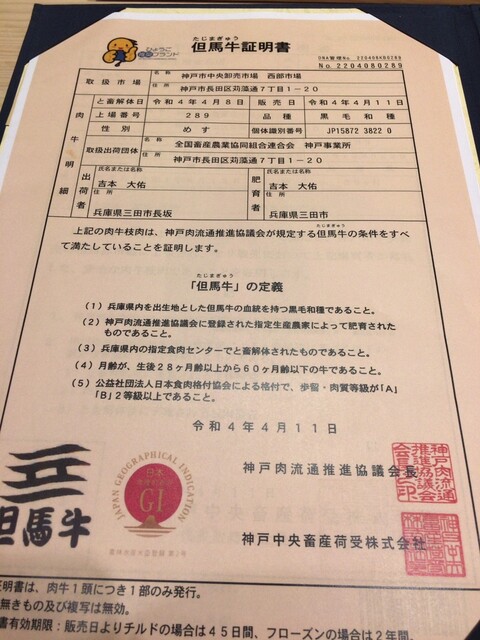 ひょうご
推奨ブランド
たじまぎゅう
但馬牛証明書
DNA管理No. 2204080289
No. 2204080289
取扱市場
名称 神戸市中央卸売市場 西部市場
住所 神戸市長田区苅藻通7丁目1-20
肉牛明細
と畜解体日 令和4年4月8日 販売日 令和4年4月11日
上場番号 289 品種 黒毛和種
性別 めす 個体識別番号 JP15872 3822 0
取扱出荷団体
名称 全国畜産農業協同組合連合会 神戸事業所
住所 神戸市長田区苅藻通7丁目1-20
出荷者
氏名または名称
吉本 大佑
住所
兵庫県三田市長坂
肥育者
氏名または名称
吉本 大佑
住所
兵庫県三田市
上記の肉牛枝肉は、神戸肉流通推進協議会が規定する但馬牛の条件をすべ
たじまぎゅう
て満たしていることを証明します。
たじまぎゅう
「但馬牛」の定義
(1)兵庫県内を出生地とした但馬牛の血統を持つ黒毛和種であること。
(2)神戸肉流通推進協議会に登録された指定生産農家によって肥育された
ものであること。
(3)兵庫県内の指定食肉センターでと畜解体されたものであること。
(4)月齢が、生後28ヶ月齢以上から60ヶ月齢以下の牛であること。
(5)公益社団法人日本食肉格付協会による格付で、歩留・肉質等級が「A」
「B」2等級以上であること。
令和4年4月11日
神戸肉流通推進協議会長
神戸肉流通推進協議会会長之印
神戸中央畜産荷受株式会社
但馬牛
JAPAN GEOGRAPHICAL INDICATION
日本
地理的表示
GI
農林水産大臣登録 第2号
証明書は、肉牛1頭につき1部のみ発行。
無きもの及び複写は無効。
書有効期限:販売日よりチルドの場合は45日間、フローズンの場合は2年間。